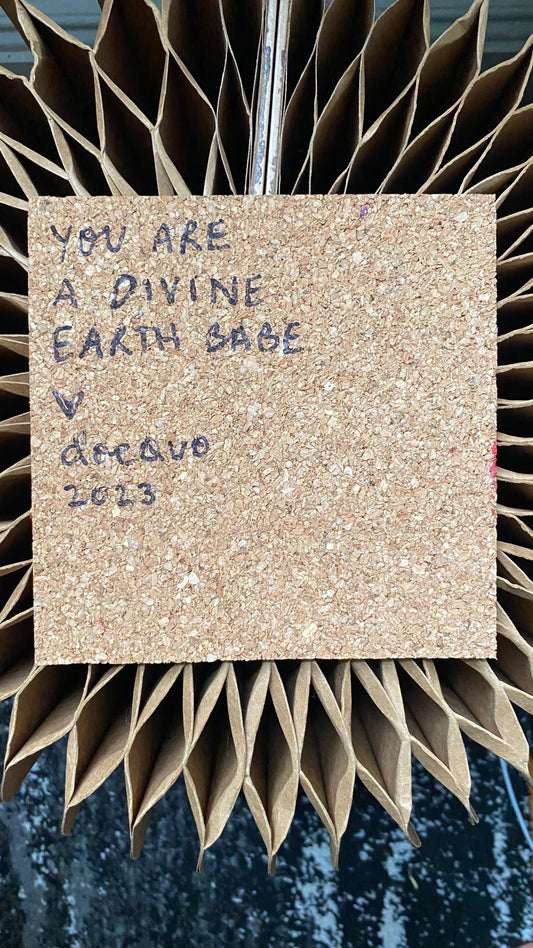 YOU ARE
A DIVINE
EARTH BABE
V
docquo
2023